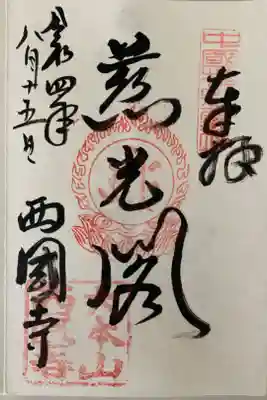 奉拝
慈光閣
令和四年
八月十五日
西國寺